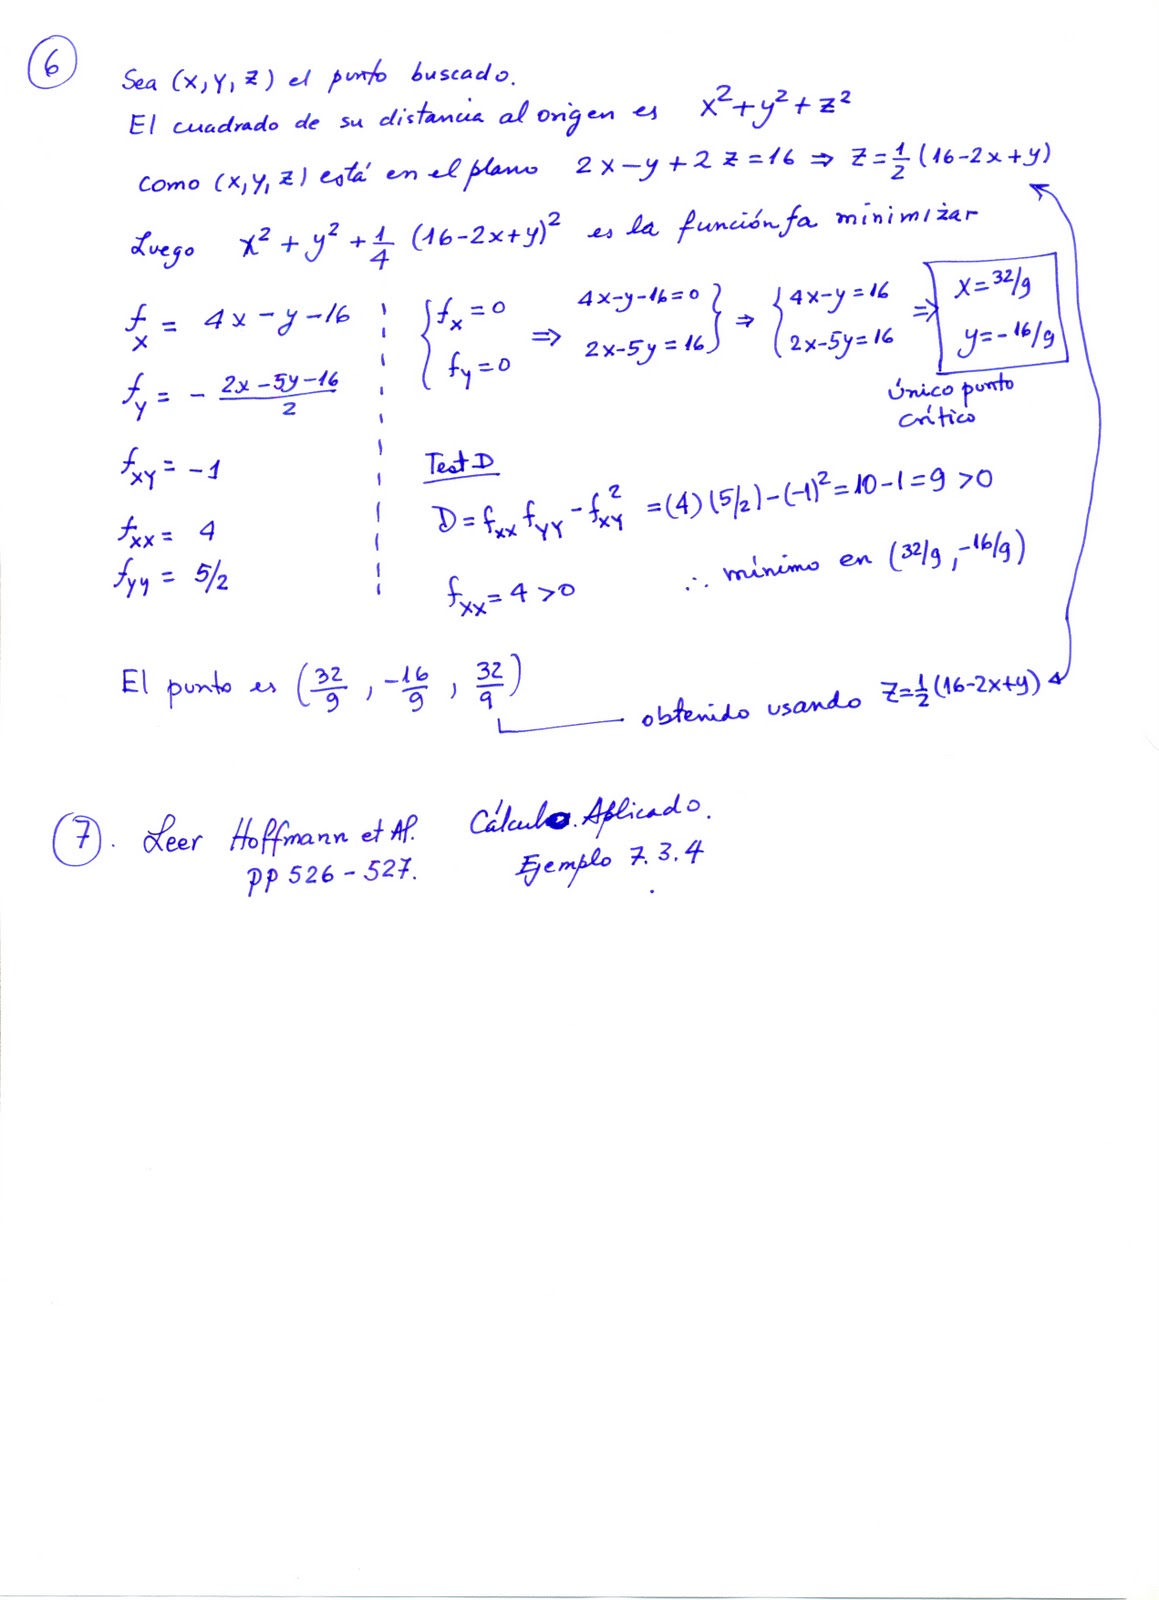 6
Sea (x, y, z) el punto buscado.
El cuadrado de su distancia al origen es x² + y² + z²
como (x, y, z) está en el plano 2x - y + 2z = 16 ⇒ z = 1/2 (16 - 2x + y)
Luego x² + y² + 1/4 (16 - 2x + y)² es la función f a minimizar
f_x = 4x - y - 16
f_y = - (2x - 5y - 16)/2
f_xy = -1
f_xx = 4
f_yy = 5/2
{ f_x = 0 ⇒ 4x - y - 16 = 0 } ⇒ { 4x - y = 16 ⇒ x = 32/9
{ f_y = 0 2x - 5y = 16 } { 2x - 5y = 16 y = -16/9
Único punto
crítico
Test D
D = f_xx f_yy - f_xy² = (4)(5/2) - (-1)² = 10 - 1 = 9 > 0
f_xx = 4 > 0 ∴ mínimo en (32/9, -16/9)
El punto es (32/9, -16/9, 32/9)
obtenido usando z = 1/2 (16 - 2x + y)
7. Leer Hoffmann et Al. Cálculo Aplicado.
pp 526 - 527. Ejemplo 7.3.4